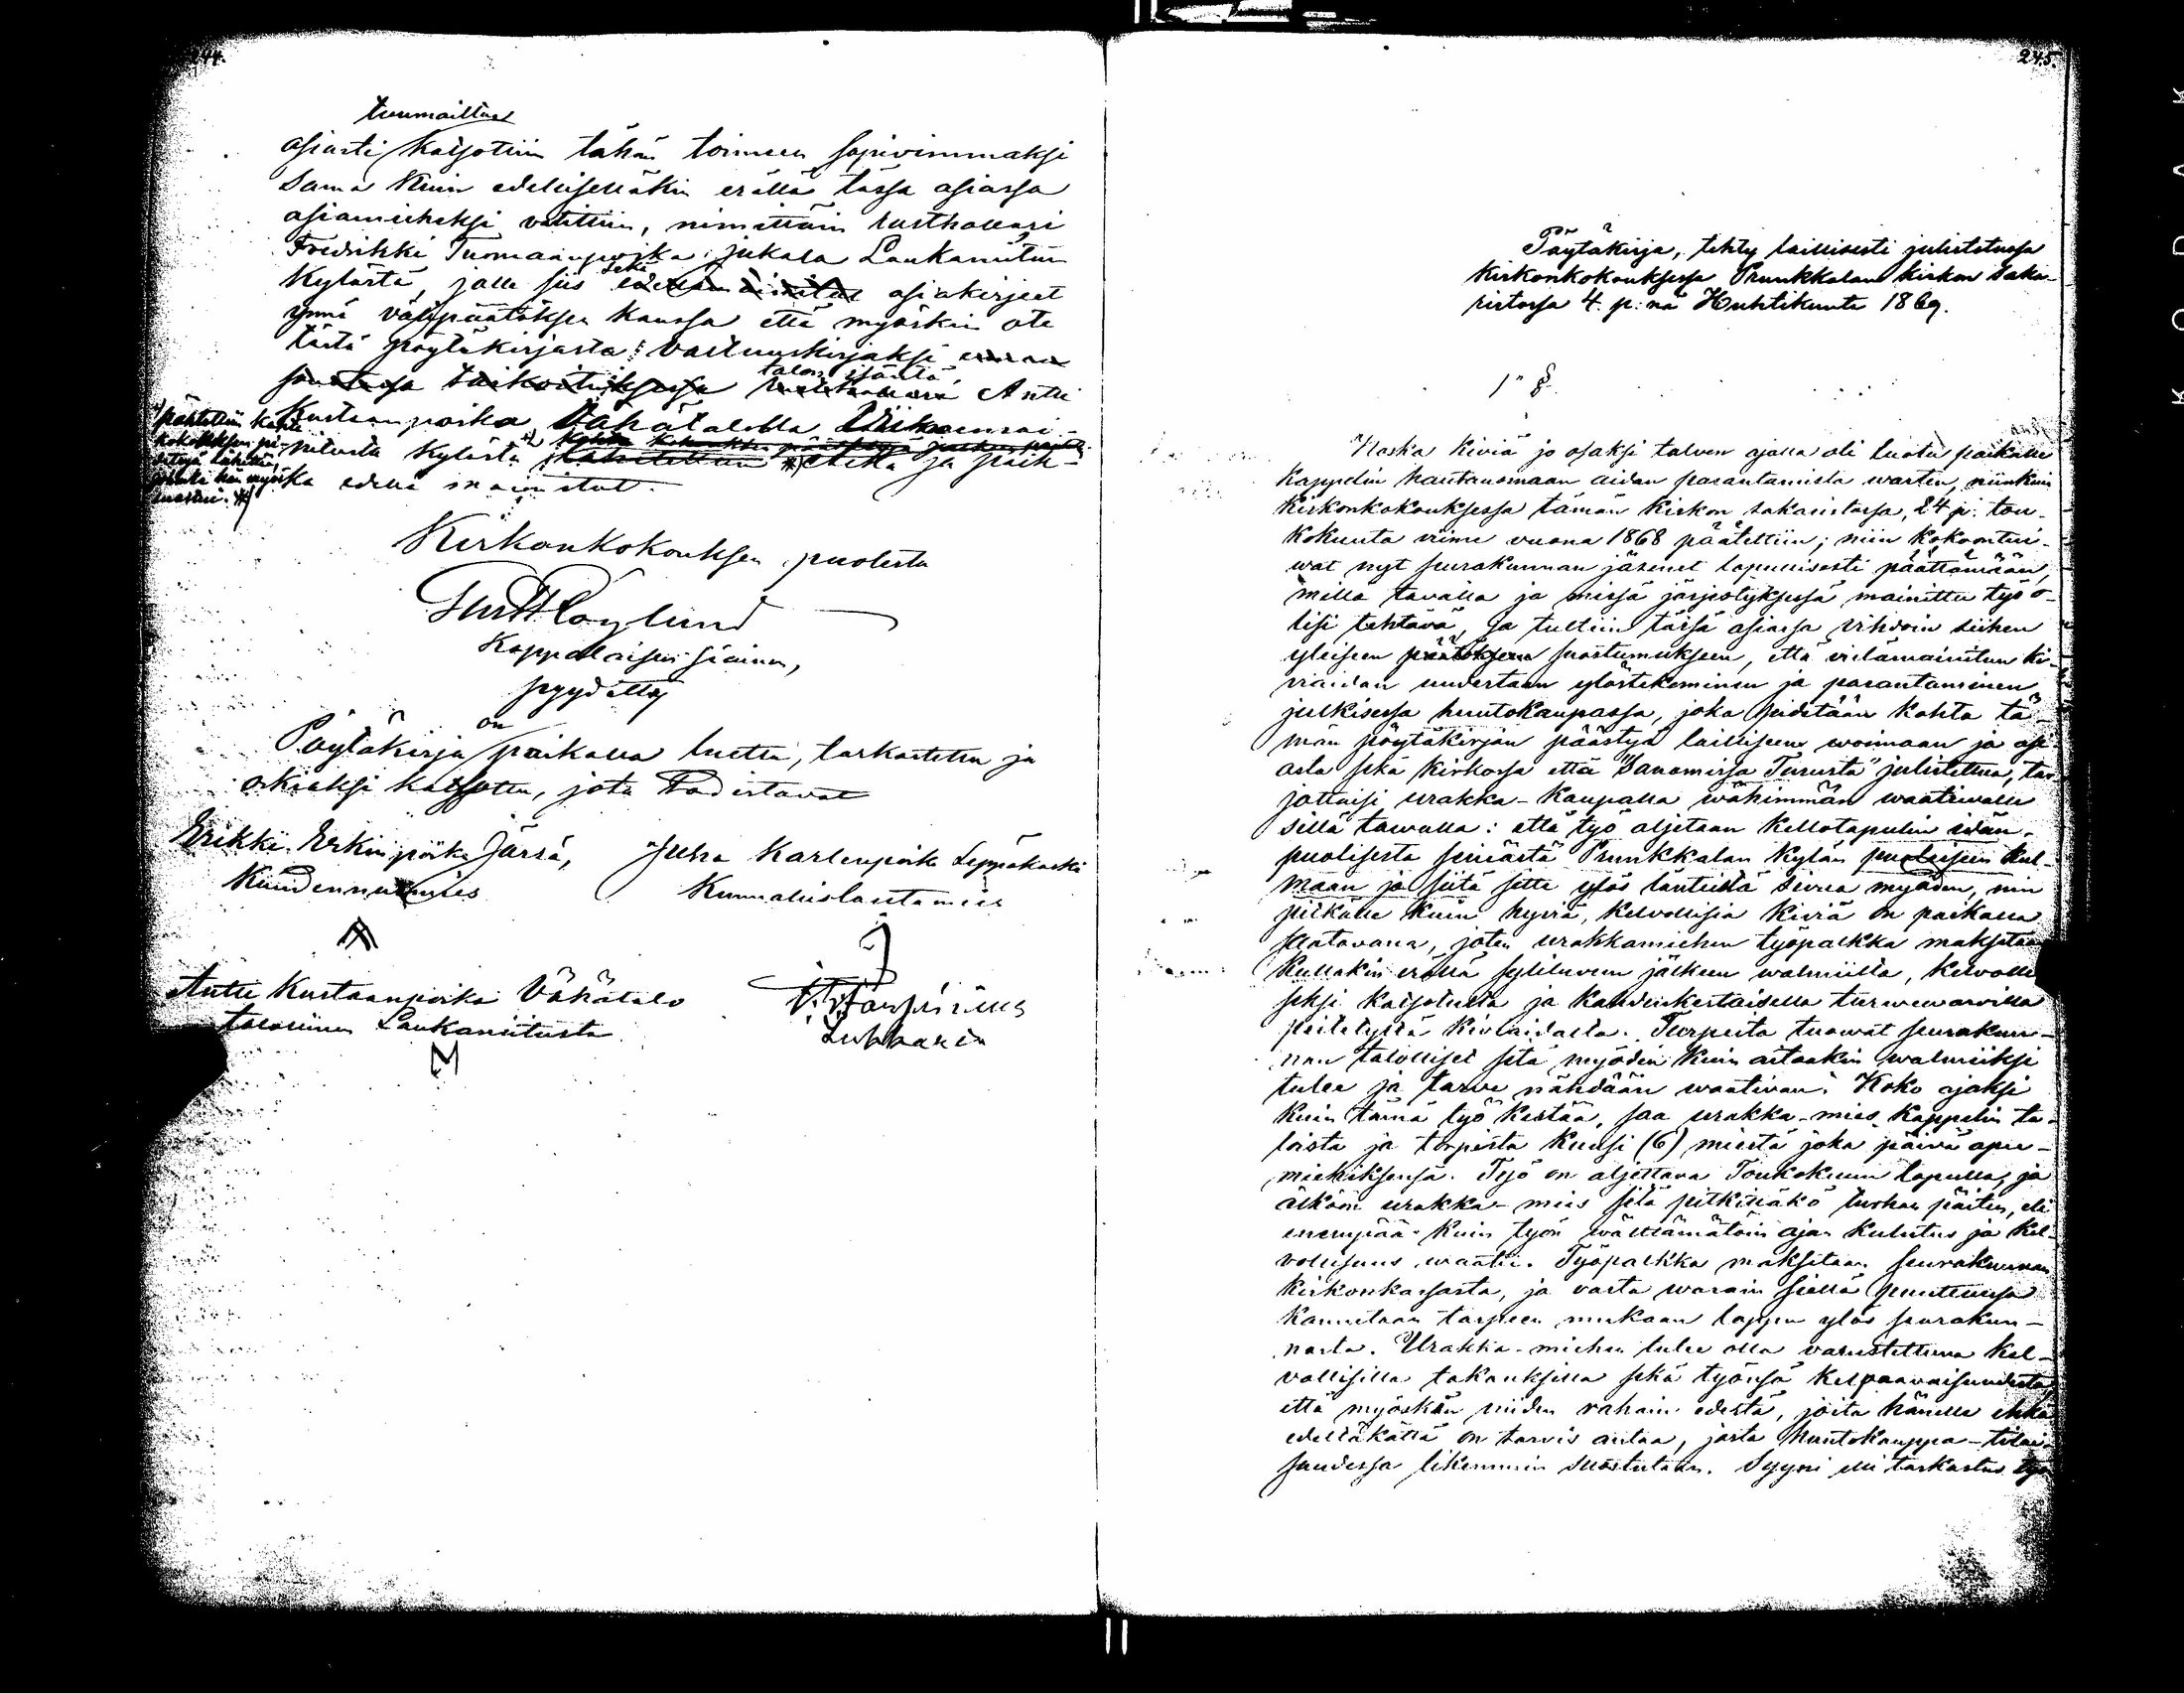 244.
tuumailtua
asiasti katsottiin tähän toimeen sopivimmaksi
sama kuin edellisellakin erällä tässä asiassa
asiamieheksi valittiin, nimittäin rusthollari
Fredrikki Tuomaanpoika Jukala Laukaniitun
kylästä, jolle siis sekä asiakirjeet
ynnä välipäätöksen kanssa että myöskin ote
tästä pöytäkirjasta valtuuskirjaksi
talon isäntä, Antti
Kustaanpoika Vähätalolla
kylästä ja paik-
ka edellä mainitut.
päätettiin
kokouksen
Kirkonkokouksen puolesta
Kappalaisen siainen,
pyydetty
on
Pöytäkirja paikalla luettu, tarkastettu ja
oikiaksi katsottu, jota todistavat
Erikki Erkinpoika Järsä, Juha Karlenpoika Leppäkoski
Kuudennusmies Kunnallislautamies
Antti Kustaanpoika Vähätalo
talollinen Laukaniitusta Lukkari
245.
Pöytäkirja, tehty laillisesti julistetussa
kirkonkokouksessa Prunkkalan kirkon saka-
ristossa 4. p:nä Huhtikuuta 1869.
1" §.
Koska kiviä jo osaksi talven ajalla oli tuotu paikalle
Kappelin hautausmaan aidan parantamista warten, niinkuin
kirkonkokouksessa tämän kirkon sakaristossa, 24 p. tou-
kokuuta viime vuona 1868 päätettiin; niin kokoontui-
wat nyt seurakunnan jäsenet lopullisesti päättämään,
millä tavalla ja missä järjestyksessä mainittu työ o-
lisi tehtävä, ja tultiin tässä asiassa vihdoin siihen
yleiseen päätökseen suostumukseen, että vielämainitun ki-
viaidan uudestaan ylöstekeminen ja parantaminen
julkisessa huutokaupassa, joka pidetään kohta tä-
män pöytäkirjan päästyä lailliseen woimaan ja asi-
asta sekä kirkossa että "Sanomissa Turusta" julistettua, tar-
jottaisi urakka-kaupalla wähimmän waatiwalle
sillä tawalla: että työ aljetaan kellotapulin idän-
puolisesta seinästä Prunkkalan kylän puoleiseen kul-
maan ja siitä sitte ylös läntistä sivua myöden, niin
pitkälle kuin hyviä, kelvollisia kiviä on paikalla
saatavana, joten urakkamiehen työpalkka maksetaan
kullakin erällä syliluvun jälkeen walmiilta, kelvolli-
seksi katsotusta ja kahdenkertaisella turwewarvilla
peitetystä kiviaidasta. Turpeita tuowat seurakun-
nan talolliset sitä myöden kuin aitaakin walmiiksi
tulee ja tarve nähdään waativan. Koko ajaksi
kuin tämä työ kestää, saa urakka-mies kappelin ta-
loista ja torpista kuusi (6) miestä joka päivä apu-
miehiksensä. Työ on aljettava Toukokuun lopulla, ja
älköön urakka-mies sitä pitkittäkö turhan päiten, eli
enempää kuin työn wälttämätöin ajan kulutus ja kel-
vollisuus waatii. Työpalkka maksetaan seurakunnan
kirkonkassasta, ja vasta warain siellä puuttuissa
kannetaan tarpeen mukaan loppu ylös seurakun-
nasta. Urakka-miehen tulee olla varustettuna kel-
vollisilla takauksilla sekä työnsä kelpaavaisuudesta,
että myöskän niiden rahain edestä, joita hänelle ehkä
edelläkättä on tarvis antaa, josta huutokauppa-tilai-
suudessa likemmin suostutaan. Syyni eli tarkastus työ
KODAK